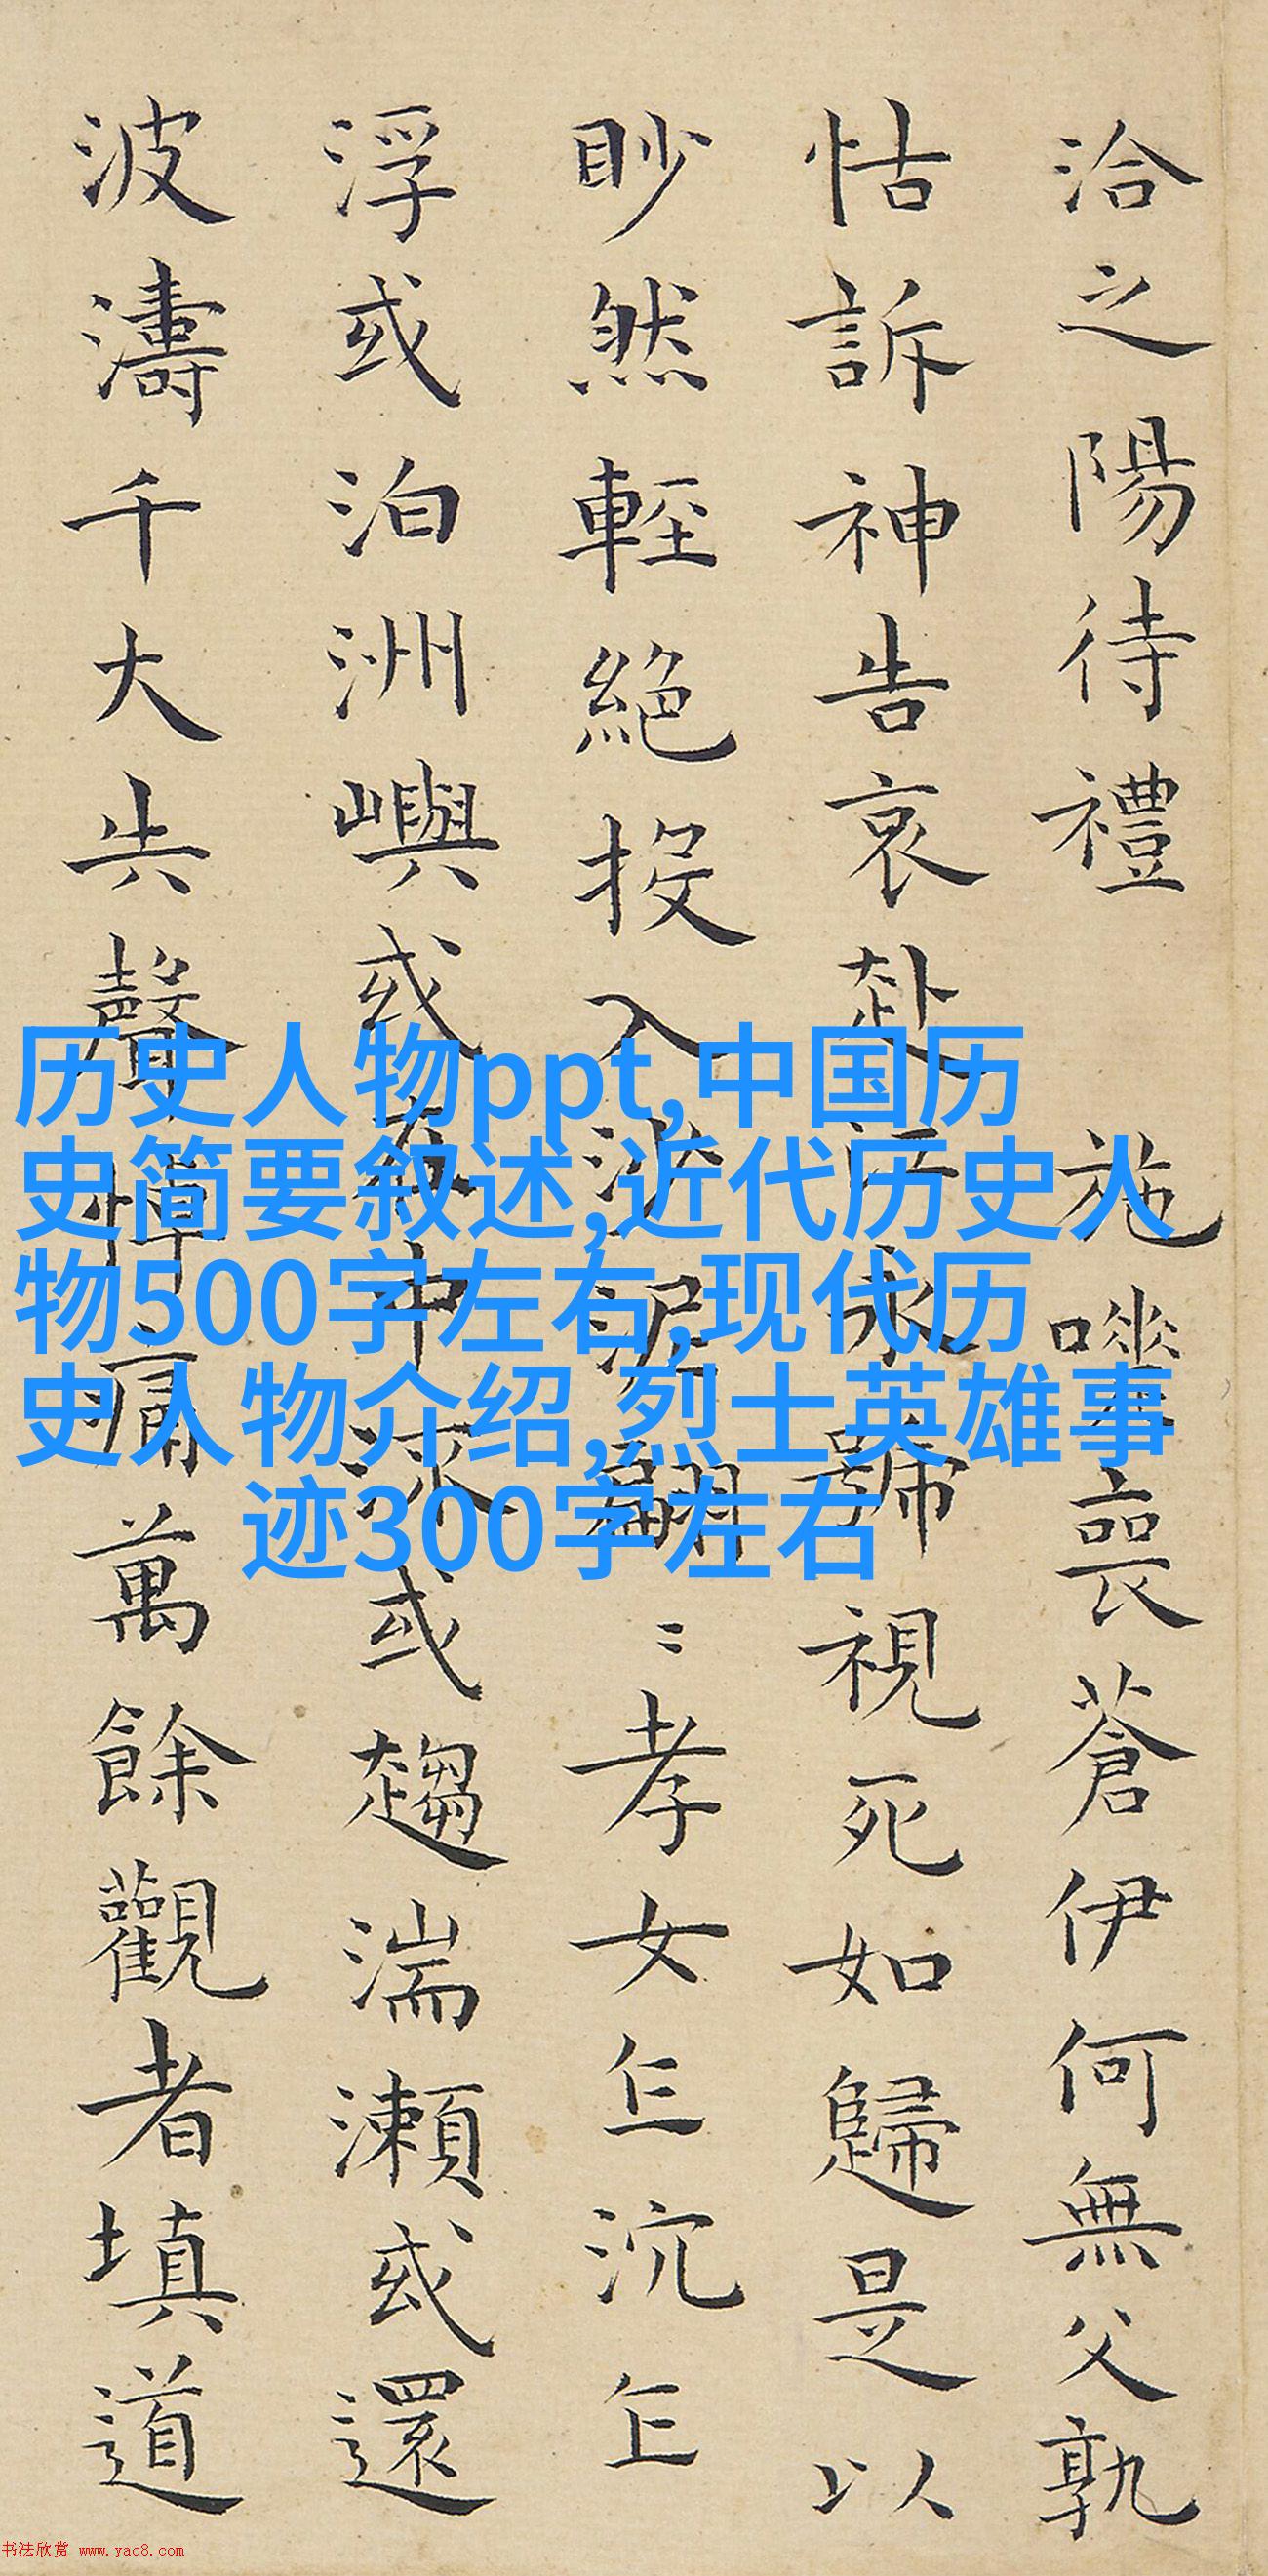 洽之陽待禮 施嗟喪蒼伊何無父孰
怙訴神告哀赴江永號視死如歸是以
眇然輕絕投入沙泥翩〻孝女乍沉乍
浮或泊洲嶼或在中流或趨湍瀨或還
波濤千大失聲悼痛萬餘觀者填道
历史人物ppt,中国历
史简要叙述,近代历史人
物500字左右,现代历
史人物介绍,烈士英雄事
迹300字左右
书法欣赏 www.yac8.com